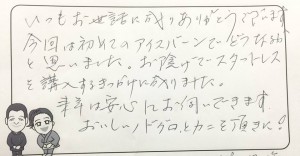 いつもお世話に成りありがとうございます
今回は初めてのアイスバーンでどうなるか
と思いました。お陰げでスタットレス
を購入するきっかけに成りました。
は安心してお
おいしいノドグロとカニを頂きに!